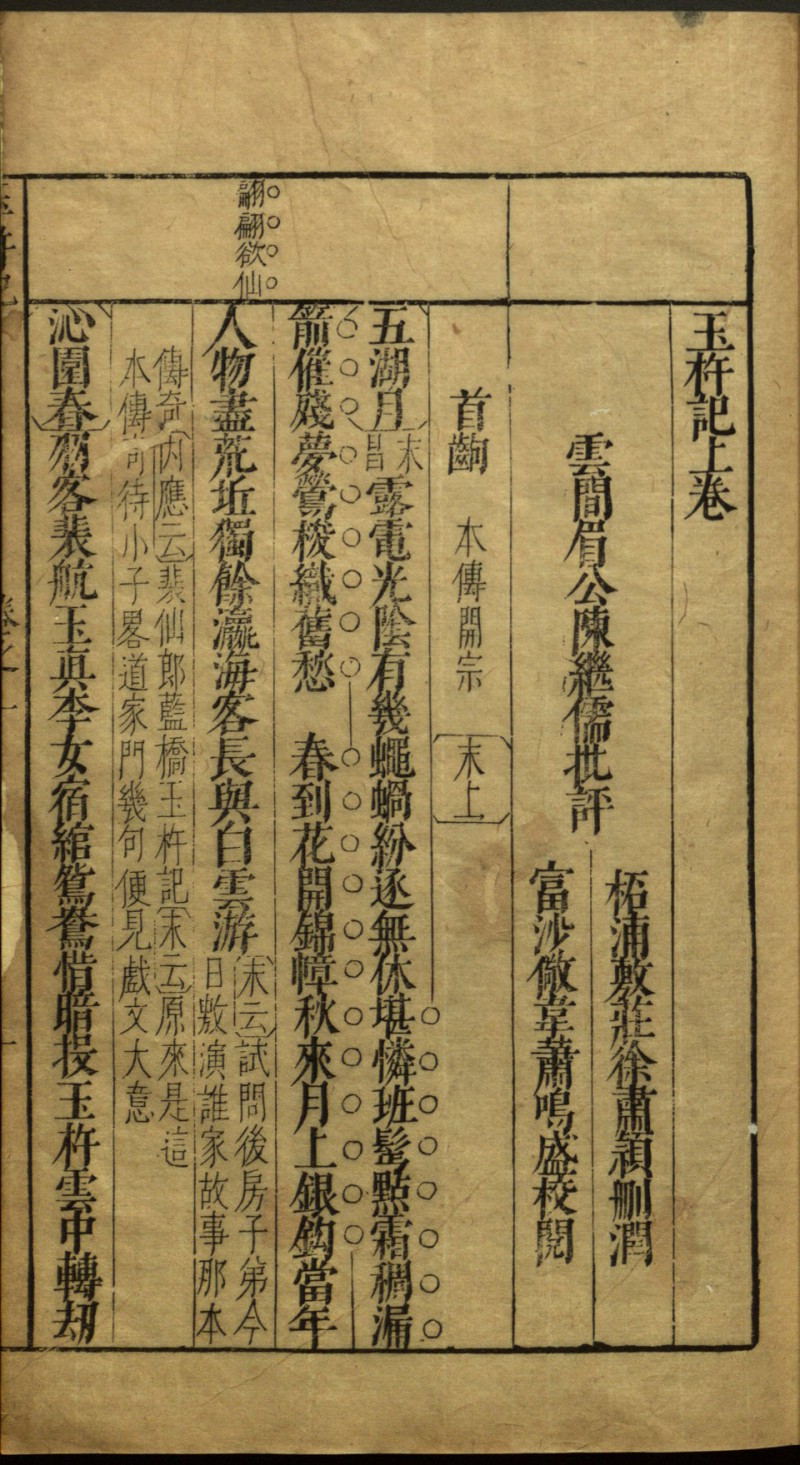 玉杵記上卷
雲間眉公陳繼儒批評
柘浦敷莊徐肅穎刪潤
富沙儆韋蕭鳴盛校閱
首齣 本傳開宗 末上
五湖月 末唱 露電光陰有幾蠅蝸紛逐無休堪憐班髩點霜稠漏
箭催殘夢鶯梭織舊愁 春到花開錦幛秋來月上銀鈎當年
翩翩欲仙
人物盡荒坵獨餘瀛海客長與白雲游 末云試問後房子弟今
日敷演誰家故事那本
傳奇 內應云裴仙郎藍橋玉杵記 末云原來是這
本傳奇待小子畧道家門幾句便見戲文大意
沁園春 劣客裴航玉真李女宿綰鴛鴦惜暗投玉杵雲中轉劫